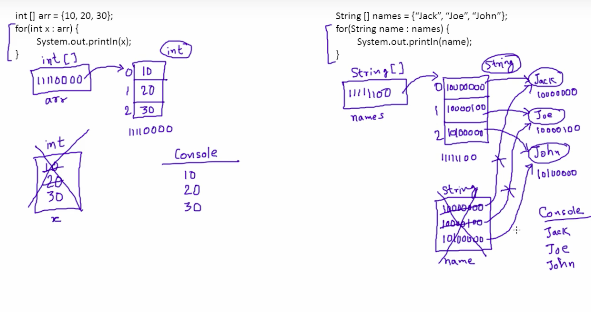 int [] arr = {10, 20, 30};
for(int x : arr) {
System.out.println(x);
}
int []
11110000
arr
int
0 10
1 20
2 30
11110000
int
10
20
30
x
Console
10
20
30
String [] names = {“Jack”, “Joe”, “John”};
for(String name : names) {
System.out.println(name);
}
String []
11111100
names
String
0 10000000
1 10000100
2 10100000
11111100
Jack
10000000
Joe
10000100
John
10100000
String
10000000
10000100
10100000
name
Console
Jack
Joe
John